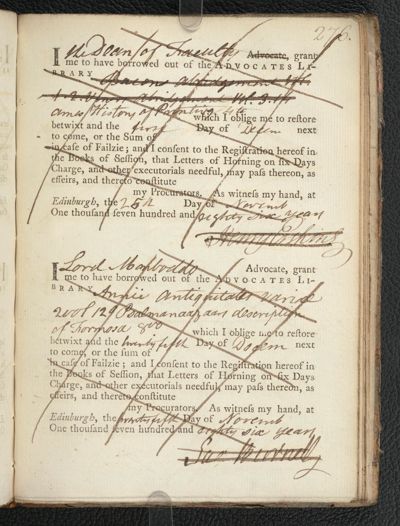 276.
I the Dean of Faculty Advocate, grant
me to have borrowed out of the ADVOCATES LI-
BRARY Bacons abridgement
ames History of Printing
which I oblige me to restore
betwixt and the first Day of Decem next
to come, or the Sum of
in case of Failzie; and I consent to the Registration hereof in
the Books of Session, that Letters of Horning on six Days
Charge, and other executorials needful, may pass thereon, as
effeirs, and thereto constitute
my Procurators. As witness my hand, at
Edinburgh, the 25th Day of Novemr
One thousand seven hundred and eighty six years
Henry Erskine
I Lord Monboddo Advocate, grant
me to have borrowed out of the ADVOCATES LI-
BRARY Annii antiquitates variæ
Psalmanaazaars description
of Formosa 8vo which I oblige me to restore
betwixt and the twenty fifth Day of Decem next
to come, or the sum of
in case of Failzie; and I consent to the Registration hereof in
the Books of Session, that Letters of Horning on six Days
Charge, and other executorials needful, may pass thereon, as
effeirs, and thereto constitute
my Procurators. As witness my hand, at
Edinburgh, the twenty fifth Day of Novemr
One thousand seven hundred and eighty six years
Jas Burnett